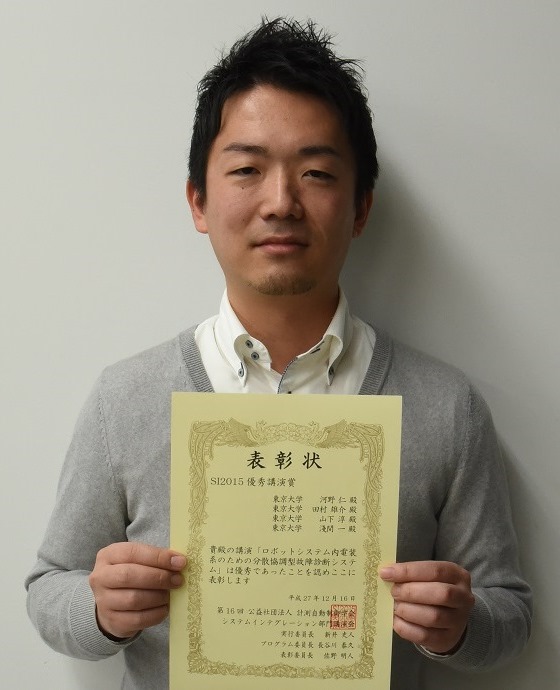 表彰状
SI2015優秀講演賞
東京大学 河野 仁 殿
東京大学 田村 雄介 殿
東京大学 山下 淳 殿
東京大学 淺間 一 殿
貴殿の講演「ロボットシステム内電装
系のための分散協調型故障診断システ
ム」は優秀であったことを認めここに
表彰します
平成27年12月16日
第16回 公益社団法人 計測自動制御学会
システムインテグレーション部門講演会
実行委員長 新井 史人
プログラム委員長 長谷川 泰久
表彰委員長 佐野 明人